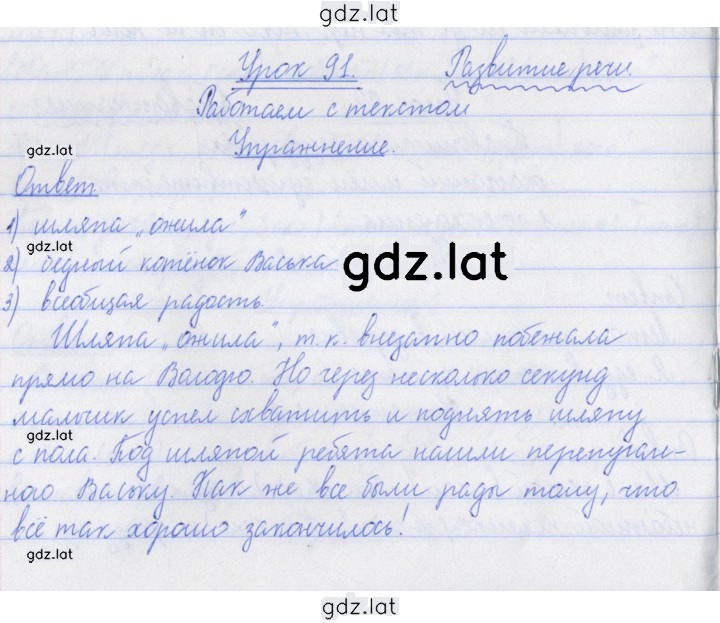 gdz.lat
Урок 91. Развитие речи.
Работаем с текстом
Упражнение.
gdz.lat
Ответ
1) шляпа „ожила"
gdz.lat
2) бедный котёнок Васька
gdz.lat
3) всеобщая радость.
Шляпа „ожила", т. к. внезапно побежала
gdz.lat
прямо на Володю. Но через несколько секунд
мальчик успел схватить и поднять шляпу
gdz.lat
с пола. Под шляпой ребята нашли перепуган-
ного Ваську. Как же все были рады тому, что
всё так хорошо закончилось!
gdz.lat
gdz.lat